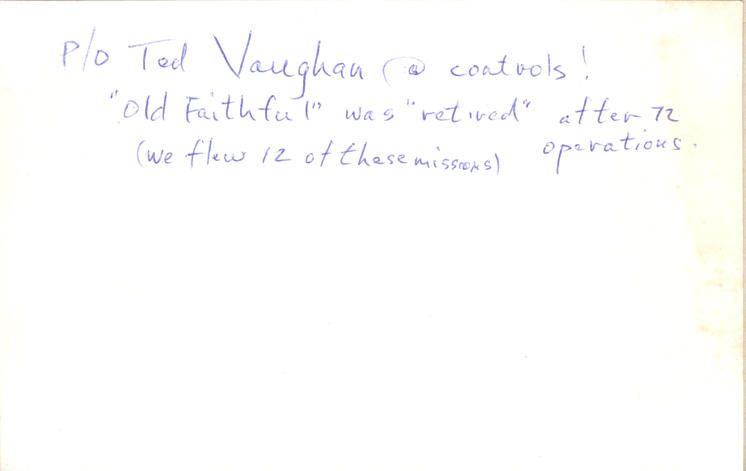 P/O Ted Vaughan @ controls!
"Old Faithful" was "retired" after 72
(we flew 12 of these missions) operations.